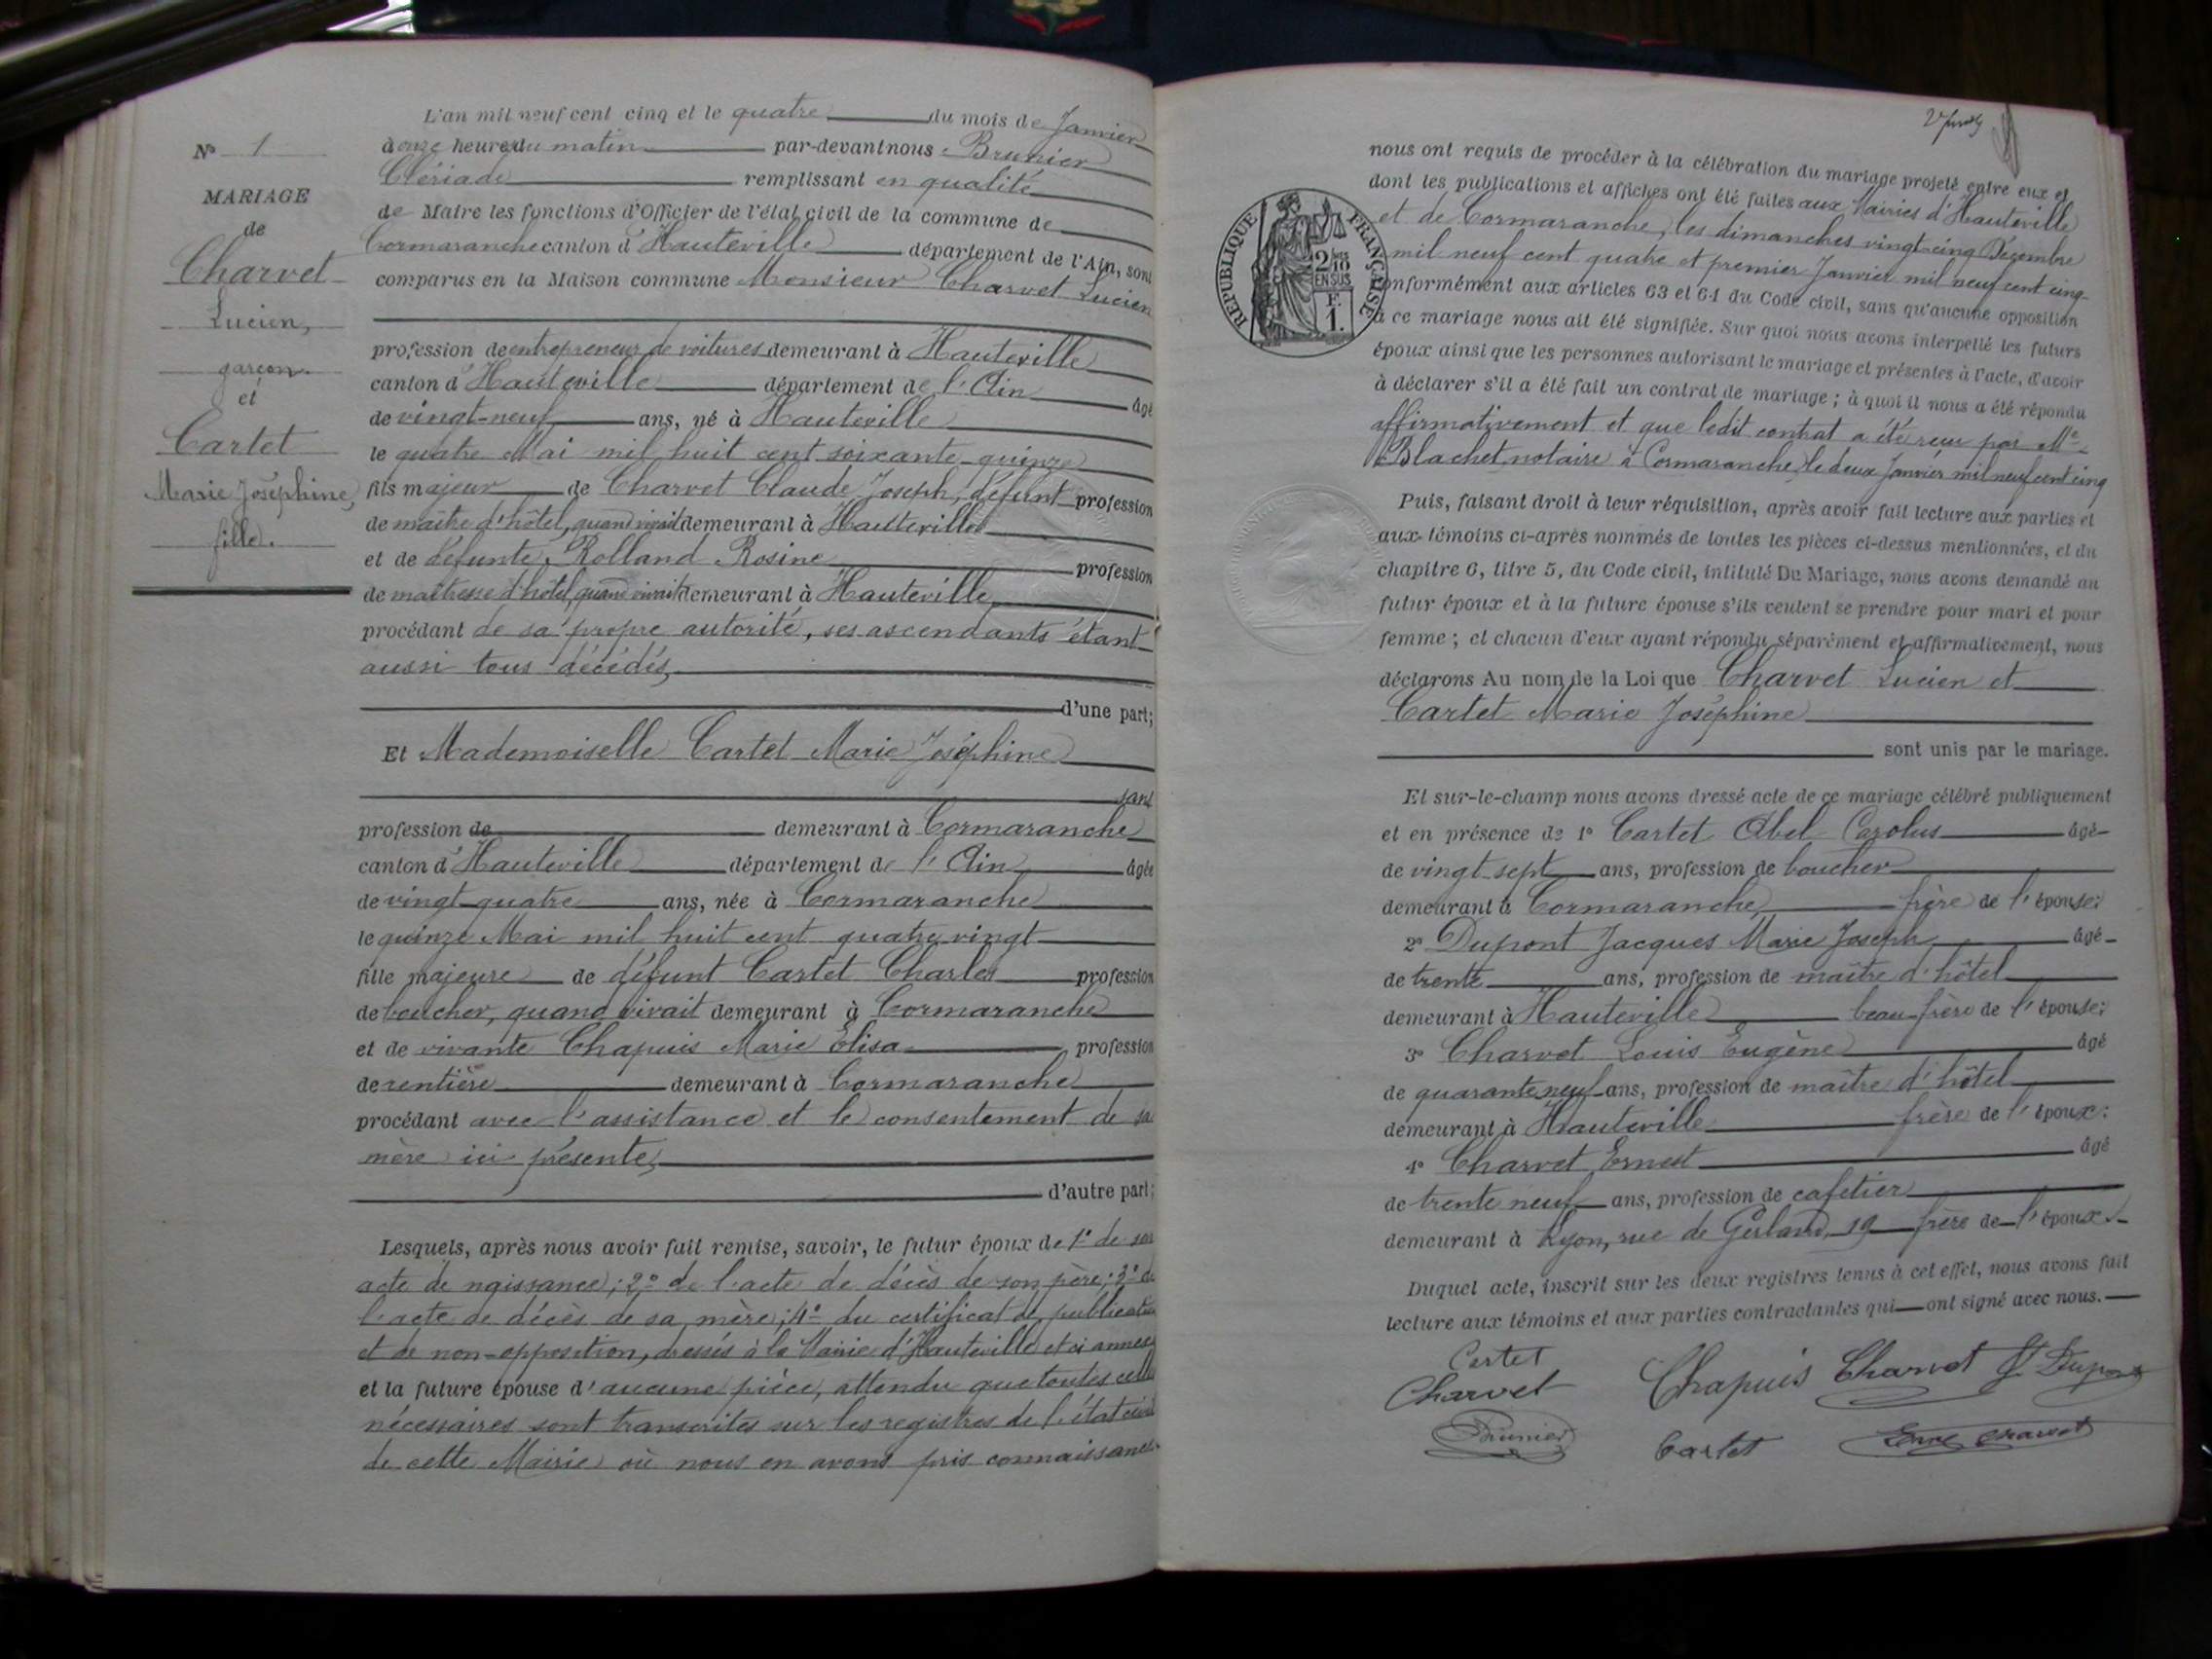 N° 1
MARIAGE
de
Charvet
Lucien,
garçon.
et
Cartet
Marie Joséphine,
fille.
L'an mil neuf cent cinq et le quatre du mois de Janvier
à onze heures du matin par-devant nous Brunier
Clériade remplissant en qualité
de Maire les fonctions d'Officier de l'état civil de la commune de
Cormaranche canton d'Hauteville département de l'Ain, sont
comparus en la Maison commune Monsieur Charvet Lucien
profession de entrepreneur de voitures demeurant à Hauteville
canton d'Hauteville département de l'Ain âgé
de vingt-neuf ans, né à Hauteville
le quatre Mai mil huit cent soixante quinze
fils majeur de Charvet Claude Joseph, défunt profession
de maître d'hôtel, quand vivait demeurant à Hauteville
et de défunte Rolland Rosine profession
de maîtresse d'hôtel, quand vivait demeurant à Hauteville,
procédant de sa propre autorité, ses ascendants étant
aussi tous décédés,
d'une part;
Et Mademoiselle Cartet Marie Joséphine
sans
profession de demeurant à Cormaranche
canton d'Hauteville département de l'Ain âgée
de vingt-quatre ans, née à Cormaranche
le quinze Mai mil huit cent quatre vingt
fille majeure de défunt Cartet Charles profession
de boucher, quand vivait demeurant à Cormaranche
et de vivante Chapuis Marie Elisa profession
de rentière demeurant à Cormaranche
procédant avec l'assistance et le consentement de sa
mère ici présente,
d'autre part;
Lesquels, après nous avoir fait remise, savoir, le futur époux de 1° de son
acte de naissance; 2° de l'acte de décès de son père; 3° de
l'acte de décès de sa mère; 4° du certificat de publication
et de non-opposition, dressés à la Mairie d'Hauteville et ci annexés
et la future épouse d'aucune pièce, attendu que toutes celles
nécessaires sont transcrites sur les registres de l'état civil
de cette Mairie où nous en avons pris connaissance
nous ont requis de procéder à la célébration du mariage projeté entre eux et
dont les publications et affiches ont été faites aux Mairies d'Hauteville
et de Cormaranche, les dimanches vingt-cinq Décembre
mil neuf cent quatre et premier Janvier mil neuf cent cinq
conformément aux articles 63 et 64 du Code civil, sans qu'aucune opposition
à ce mariage nous ait été signifiée. Sur quoi nous avons interpellé les futurs
époux ainsi que les personnes autorisant le mariage et présentes à l'acte, d'avoir
à déclarer s'il a été fait un contrat de mariage; à quoi il nous a été répondu
affirmativement et que ledit contrat a été reçu par Me
Blachet, notaire à Cormaranche, le deux Janvier mil neuf cent cinq
RÉPUBLIQUE FRANÇAISE
2/10
EN SUS
F.
1.
Puis, faisant droit à leur réquisition, après avoir fait lecture aux parties et
aux témoins ci-après nommés de toutes les pièces ci-dessus mentionnées, et du
chapitre 6, titre 5, du Code civil, intitulé Du Mariage, nous avons demandé au
futur époux et à la future épouse s'ils veulent se prendre pour mari et pour
femme; et chacun d'eux ayant répondu séparément et affirmativement, nous
déclarons Au nom de la Loi que Charvet Lucien et
Cartet Marie Joséphine
sont unis par le mariage.
Et sur-le-champ nous avons dressé acte de ce mariage célébré publiquement
et en présence de 1° Cartet Abel Carolus âgé
de vingt sept ans, profession de boucher
demeurant à Cormaranche, frère de l'épouse;
2° Dupont Jacques Marie Joseph âgé
de trente ans, profession de maître d'hôtel
demeurant à Hauteville beau-frère de l'épouse;
3° Charvet Louis Eugène âgé
de quarante neuf ans, profession de maître d'hôtel
demeurant à Hauteville frère de l'époux;
4° Charvet Ernest âgé
de trente neuf ans, profession de cafetier
demeurant à Lyon, rue de Gerland, 19 frère de l'époux.
Duquel acte, inscrit sur les deux registres tenus à cet effet, nous avons fait
lecture aux témoins et aux parties contractantes qui ont signé avec nous.
Cartet
Charvet Chapuis Charvet J. Dupont
Brunier Cartet Charvet